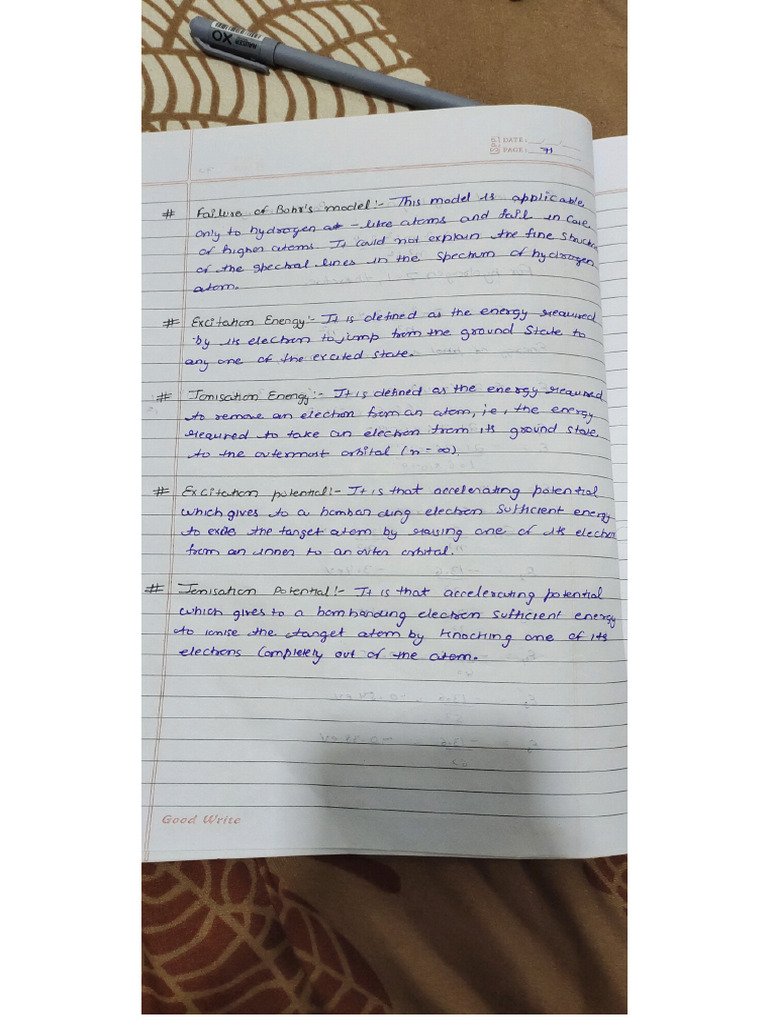 OX
DATE: __/__/__
PAGE: 71
# Failure of Bohr's model:- This model is applicable
only to hydrogen at - like atoms and fail in case
of higher atoms. It could not explain the fine structure
of the spectral lines in the spectrum of hydrogen
atom.
# Excitation Energy:- It is defined as the energy required
by its electron to jump from the ground state to
any one of the excited state.
# Ionisation Energy:- It is defined as the energy required
to remove an electron from an atom, i.e, the energy
required to take an electron from its ground state
to the outermost orbital (n - ∞).
# Excitation potential:- It is that accelerating potential
which gives to a bombarding electron sufficient energy
to excite the target atom by raising one of its electron
from an inner to an outer orbital.
# Ionisation Potential:- It is that accelerating potential
which gives to a bombanding electron sufficient energy
to ionise the target atom by knocking one of its
electrons completely out of the atom.
Good Write